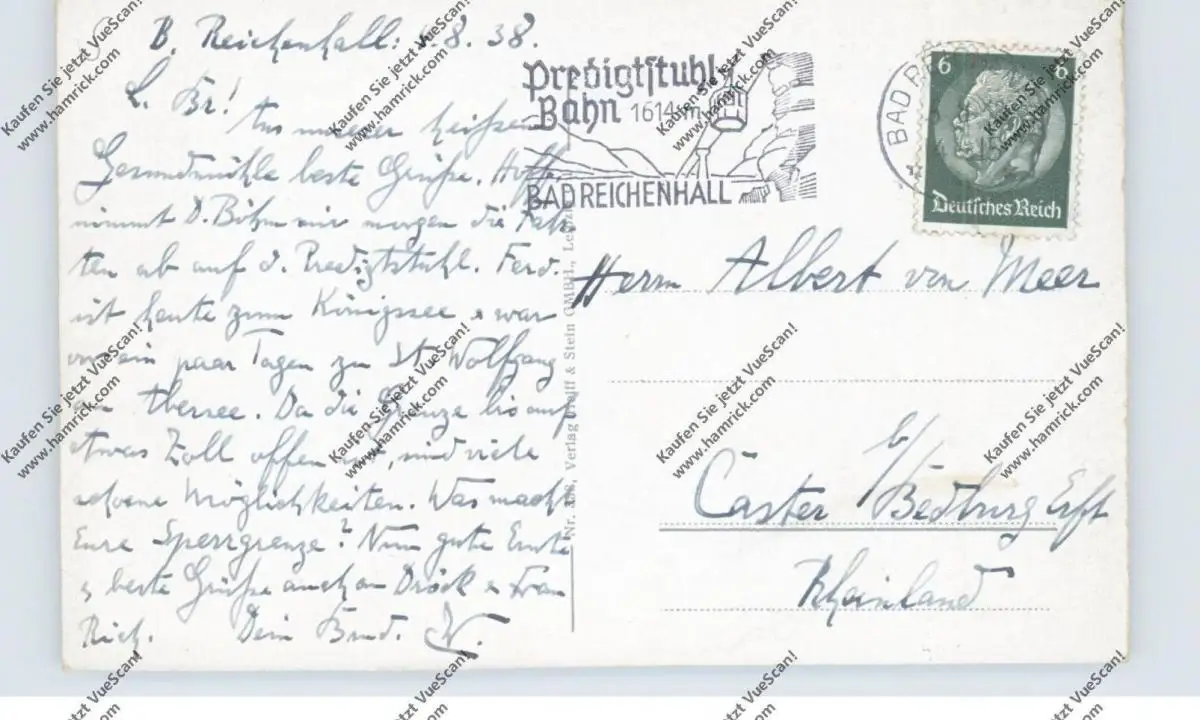 B. Reichenhall: 4.8.38.
L. Br!
Aus unserer heißen
Gesundmühle beste Grüße. Hoff.
nimmt D. Böhm mir morgen die Fahr
ten ab auf d. Predigtstuhl. Ferd.
ist heute zum Königssee & war
vor ein paar Tagen zu St. Wolfgang
am Abersee. Da die Grenze bis auf
etwas Zoll offen ist, sind viele
schöne Möglichkeiten. Was macht
Eure Sperrgrenze? Nun gute Ernte
& beste Grüße auch an Dröck & Frau
Rich. Dein Brud. W.
Predigtstuhl
Bahn 1614 m
BAD REICHENHALL
BAD R
6 6
Deutsches Reich
Nr. 328, Verlag & Stein GMBH., Leipzig
Herrn Albert von Meer
Caster b/ Bedburg Erft
Rheinland
Kaufen Sie jetzt VueScan!
www.hamrick.com